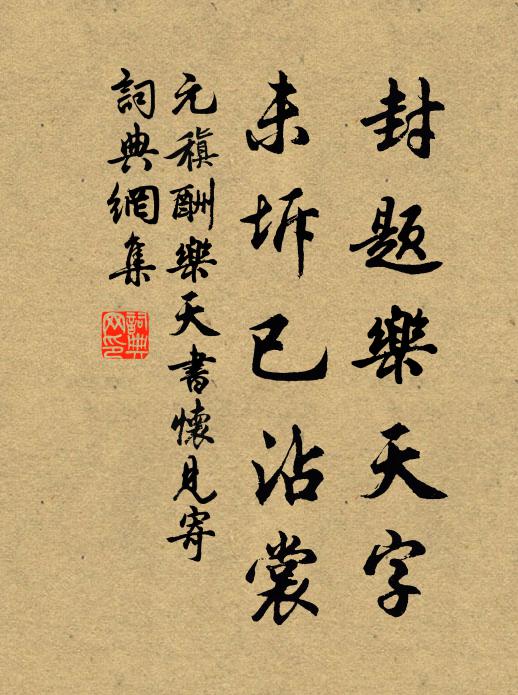 封題樂天字
未坼已沾裳
元稹酬樂天書懷見寄
詞典網集
詞典
网印